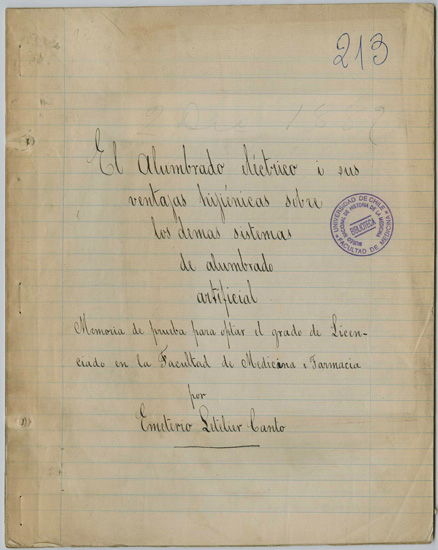 213
El Alumbrado eléctrico i sus
ventajas hijiénicas sobre
los demas sistemas
de alumbrado
artificial
UNIVERSIDAD DE CHILE
FACULTAD DE MEDICINA
MUSEO NACIONAL DE HISTORIA DE LA MEDICINA
BIBLIOTECA
Memoria de prueba para optar el grado de Licen-
ciado en la Facultad de Medicina i Farmacia
por
Emeterio Letelier Canto